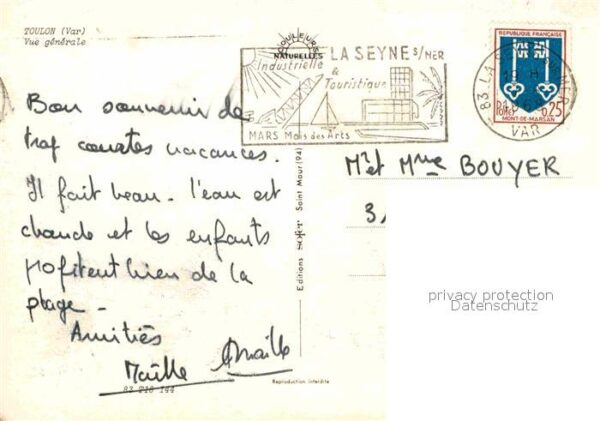 TOULON (Var)
Vue générale
COULEURS
NATURELLES
LA SEYNE S/MER
Industrielle
&
Touristique
MARS Mois des Arts
REPUBLIQUE FRANÇAISE
Postes
0,25
MONT-DE-MARSAN
83 LA
MER
VAR
Bon souvenir de
trop courtes vacances.
Il fait beau. l'eau est
chaude et les enfants
profitent bien de la
plage -
Amitiés
Editions
Saint Maur (94)
Mr et Mme BOUYER
3
privacy protection
Datenschutz
Reproduction interdite